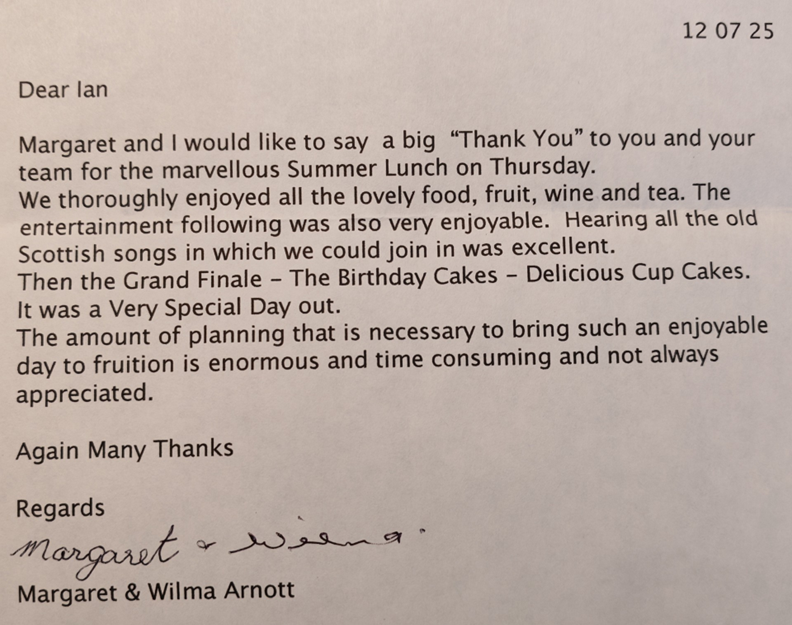 12 07 25
Dear Ian
Margaret and I would like to say  a big  “Thank You” to you and your
team for the marvellous Summer Lunch on Thursday.
We thoroughly enjoyed all the lovely food, fruit, wine and tea. The
entertainment following was also very enjoyable.  Hearing all the old
Scottish songs in which we could join in was excellent.
Then the Grand Finale – The Birthday Cakes – Delicious Cup Cakes.
It was a Very Special Day out.
The amount of planning that is necessary to bring such an enjoyable
day to fruition is enormous and time consuming and not always
appreciated.
Again Many Thanks
Regards
Margaret & Wilma.
Margaret & Wilma Arnott